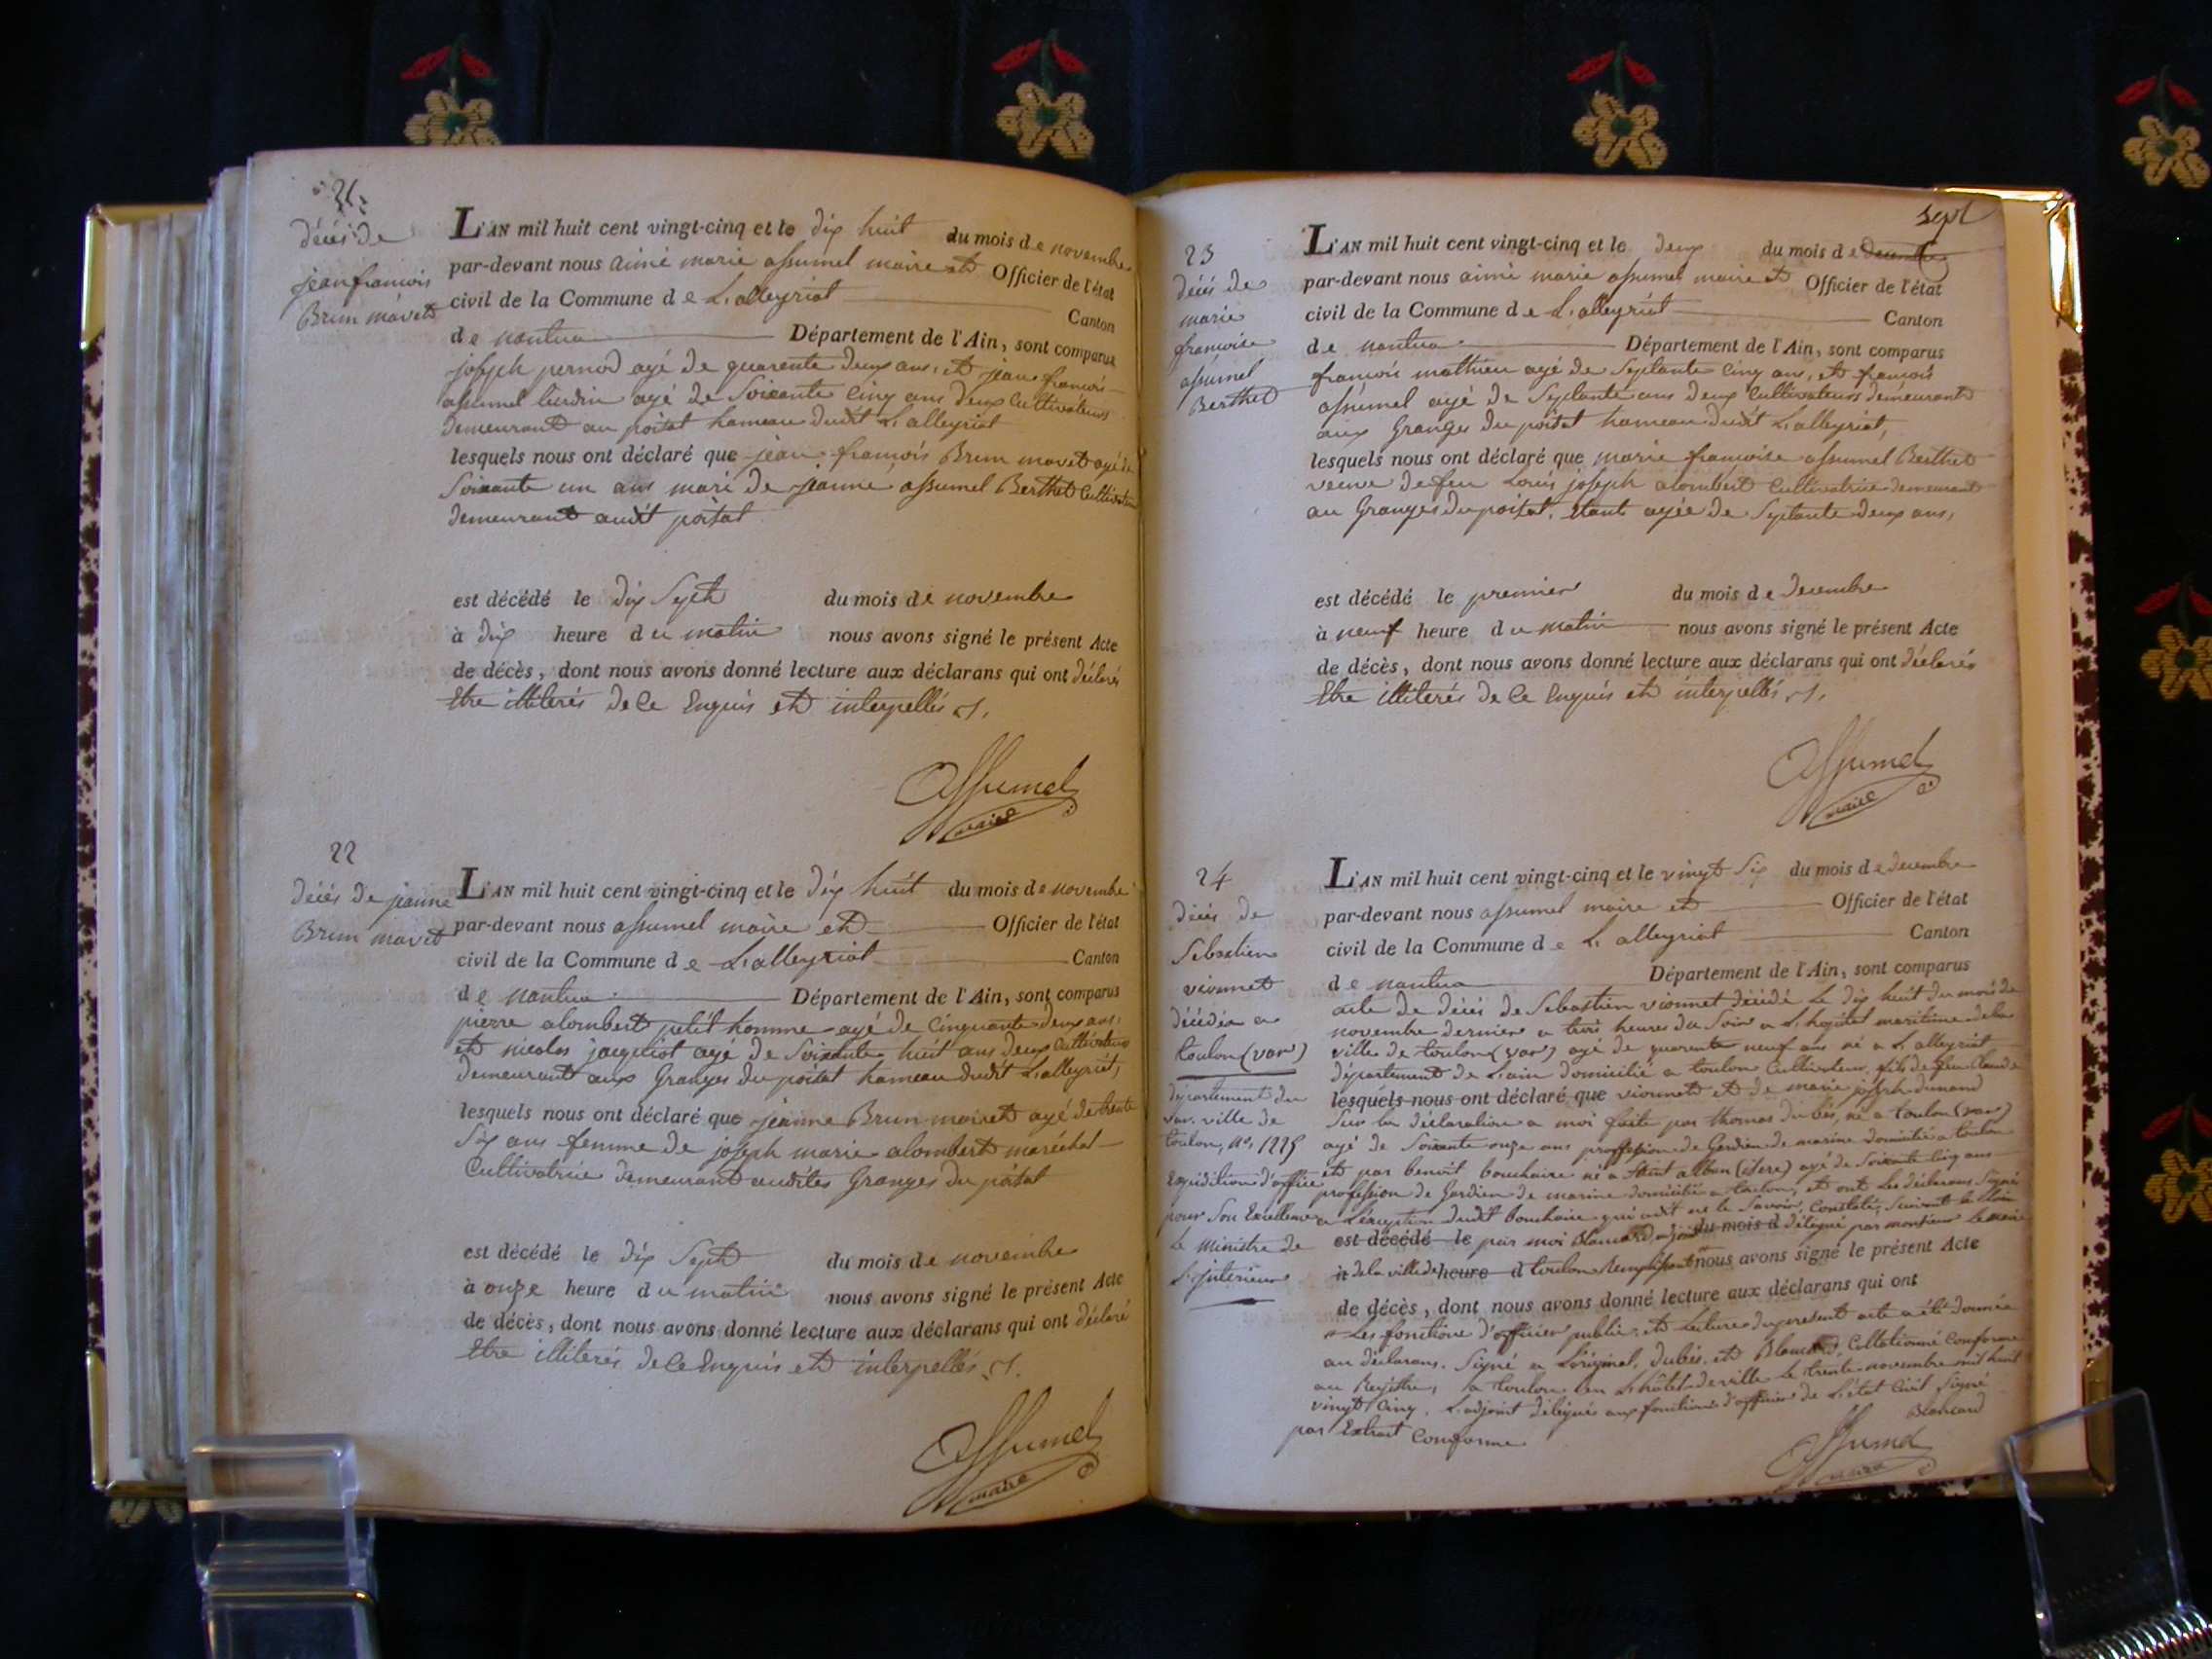 21
décès de
jean françois
Brun mavet
L'AN mil huit cent vingt-cinq et le dix huit du mois de novembre
par-devant nous aimé marie assumel maire et Officier de l'état
civil de la Commune de L'alleyriat Canton
de nantua Département de l'Ain, sont comparus
joseph pernod agé de quarente deux ans, et jean françois
assumel lurdin agé de Soixante Cinq ans deux Cultivateurs
demeurant au poitat hameau dudit L'alleyriat
lesquels nous ont déclaré que jean françois Brun mavet agé de
Soixante un ans mari de jeanne assumel Berthet Cultivateur
demeurant audit poitat
est décédé le dix Sept du mois de novembre
à dix heure du matin nous avons signé le présent Acte
de décès, dont nous avons donné lecture aux déclarans qui ont déclarés
Etre illiterés de Ce Enquis et interpellés
Assumel
maire
22
décès de jeanne
Brun mavet
L'AN mil huit cent vingt-cinq et le dix huit du mois de novembre
par-devant nous assumel maire et Officier de l'état
civil de la Commune de L'alleyriat Canton
de nantua Département de l'Ain, sont comparus
pierre alombert petit homme agé de Cinquante deux ans,
et nicolas jacquiot agé de Soixante huit ans deux Cultivateurs
demeurant aux Granges du poitat hameau dudit L'alleyriat,
lesquels nous ont déclaré que jeanne Brun mavet agé de trente
Six ans femme de joseph marie alombert maréchal
Cultivatrice demeurant audites Granges du poitat
est décédé le dix Sept du mois de novembre
à onze heure du matin nous avons signé le présent Acte
de décès, dont nous avons donné lecture aux déclarans qui ont déclaré
Etre illiterés de Ce Enquis et interpellés
Assumel
maire
23
décès de
marie
françoise
assumel
Berthet
L'AN mil huit cent vingt-cinq et le deux du mois de decembre
par-devant nous aimé marie assumel maire et Officier de l'état
civil de la Commune de L'alleyriat Canton
de nantua Département de l'Ain, sont comparus
françois mathieu agé de Septante Cinq ans, et françois
assumel agé de Septante ans deux Cultivateurs demeurant
aux Granges du poitat hameau dudit L'alleyriat,
lesquels nous ont déclaré que marie françoise assumel Berthet
veuve de feu Louis joseph alombert Cultivatrice demeurant
au Granges du poitat, Etant agée de Septante deux ans,
est décédé le premier du mois de Decembre
à neuf heure du matin nous avons signé le présent Acte
de décès, dont nous avons donné lecture aux déclarans qui ont déclarés
Etre illiterés de Ce Enquis et interpellés
Assumel
maire
24
décès de
Sebastien
vionnet
décédé a
toulon (var)
departement du
var. ville de
toulon, no.
Expédition d'office
pour Son Excellence
Le ministre de
L'interieur
L'AN mil huit cent vingt-cinq et le vingt Six du mois de decembre
par-devant nous assumel maire et Officier de l'état
civil de la Commune de L'alleyriat Canton
de nantua Département de l'Ain, sont comparus
acte de décès de Sebastien vionnet décédé Le dix huit du mois de
novembre dernier a trois heures du Soir a L'hopital maritime de la
ville de toulon (var) agé de quarente neuf ans né a L'alleyriat
département de L'ain domicilié a toulon Cultivateur, fils de feu Claude
lesquels nous ont déclaré que vionnet et de marie joseph dunand
Sur la déclaration a moi faite par thomas dubés, né a toulon (var)
agé de Soixante onze ans proffession de Gardien de marine domicilié a toulon
et par benoit bouchaire né a St alban (isere) agé de Soixante Cinq ans
profession de Gardien de marine domicilié a toulon, et ont Les déclarans Signé
a L'exception dudit bouchaire qui a dit ne le Savoir, Constaté, Suivant la Loi
est décédé le par moi Blancard, adjoint du mois d délégué par monsieur Le maire
à de la ville de heure d toulon Remplissant nous avons signé le présent Acte
de décès, dont nous avons donné lecture aux déclarans qui ont
Les fonctions d'officier public, et Lecture du present acte a été donnée
au déclarans. Signé a L'original, dubés, et Blancard, Collationné Conforme
au Registre, a toulon en L'hôtel de ville Le trente novembre mil huit
vingt Cinq. L'adjoint délégué aux fonctions d'officier de L'état Civil Signé
Blancard
par Extrait Conforme
Assumel
maire